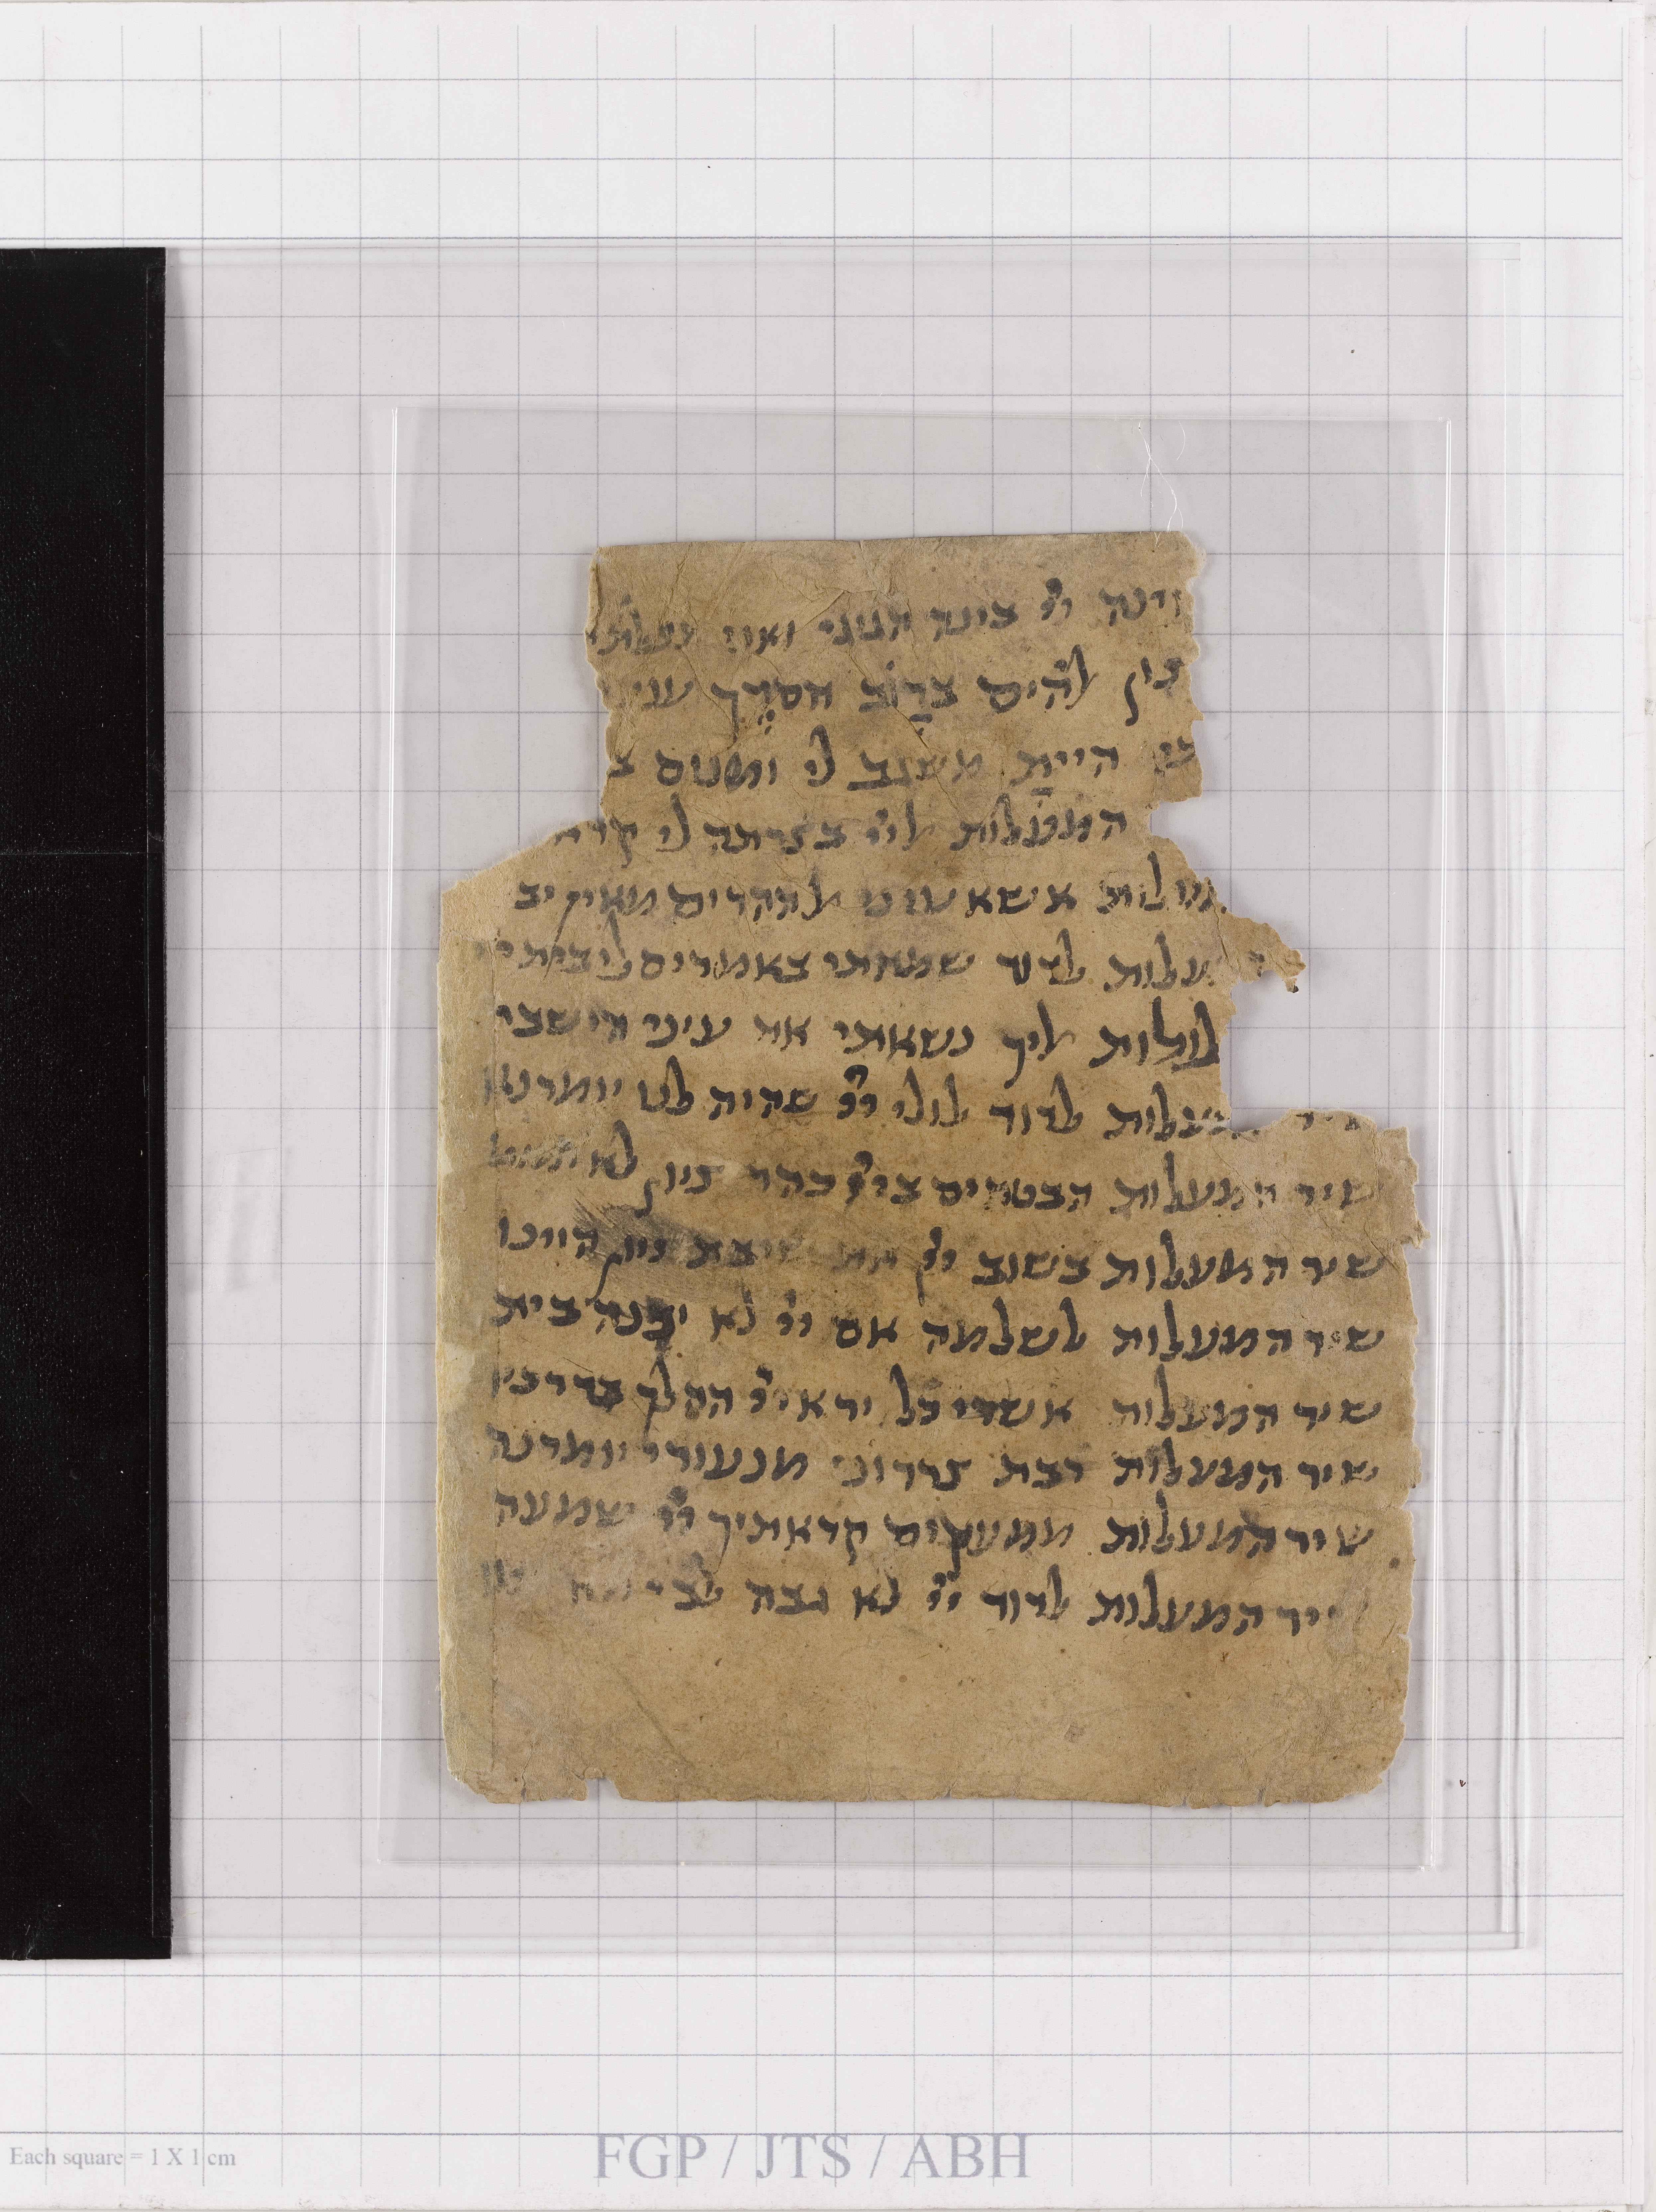 בינה הגיגי
להים ברוב חסדך
היית משגב לי ומנוס
המעלות אל יי בצרתה לי
אשא עיני אל ההרים מאין יב
עלות לדוד שמחתי באמרים לי בית
אליך נשאתי את עיני הישבי
לדוד לולי יי שהיה לנו יאמר נא
שיר המעלות הבטחים ביי כהר ציון לא
שיר המעלות בשוב יי את שיבת ציון היינו
שיר המעלות לשלמה אם יי לא יבנה בית
שיר המעלות אשרי כל ירא יי ההלך בדרכיו
שיר המעלות רבת צררוני מנעורי יאמר נא
שיר המעלות ממעקים קראתיך יי שמעה
יר המעלות לדוד יי לא גבה לבי
Each square = 1 X 1 cm
FGP / JTS / ABH